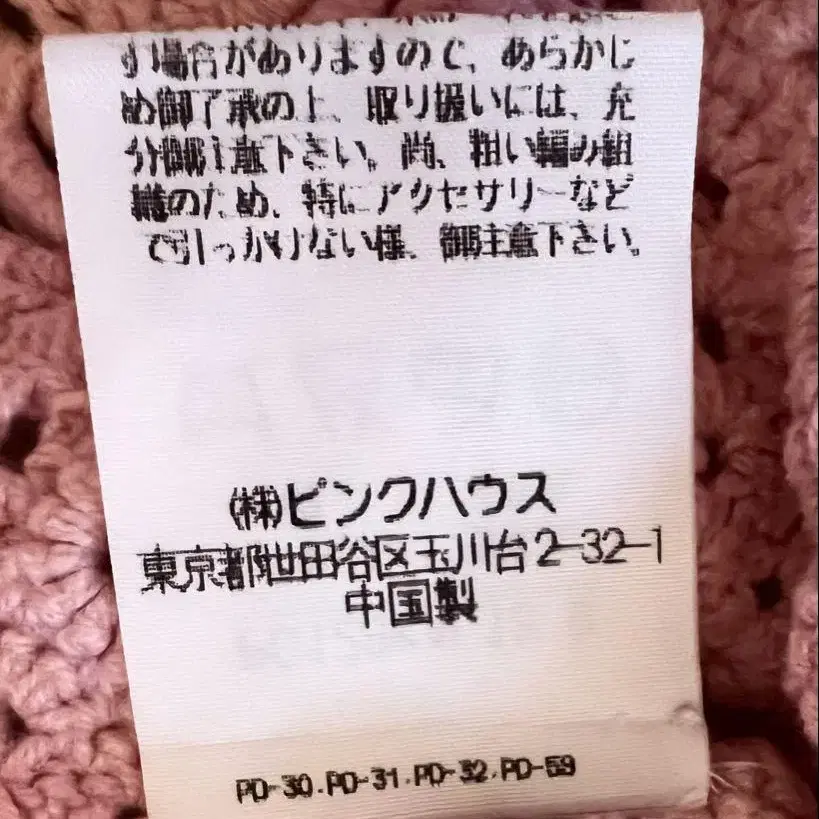 す場合がありますので、あらかじ
め御了承の上、取り扱いには、充
分御注意下さい。尚、粗い編み組
織のため、特にアクセサリーなど
で引っかけない様、御注意下さい。
(株)ピンクハウス
東京都世田谷区玉川台2-32-1
中国製
PD-30.PD-31.PD-32.PD-59